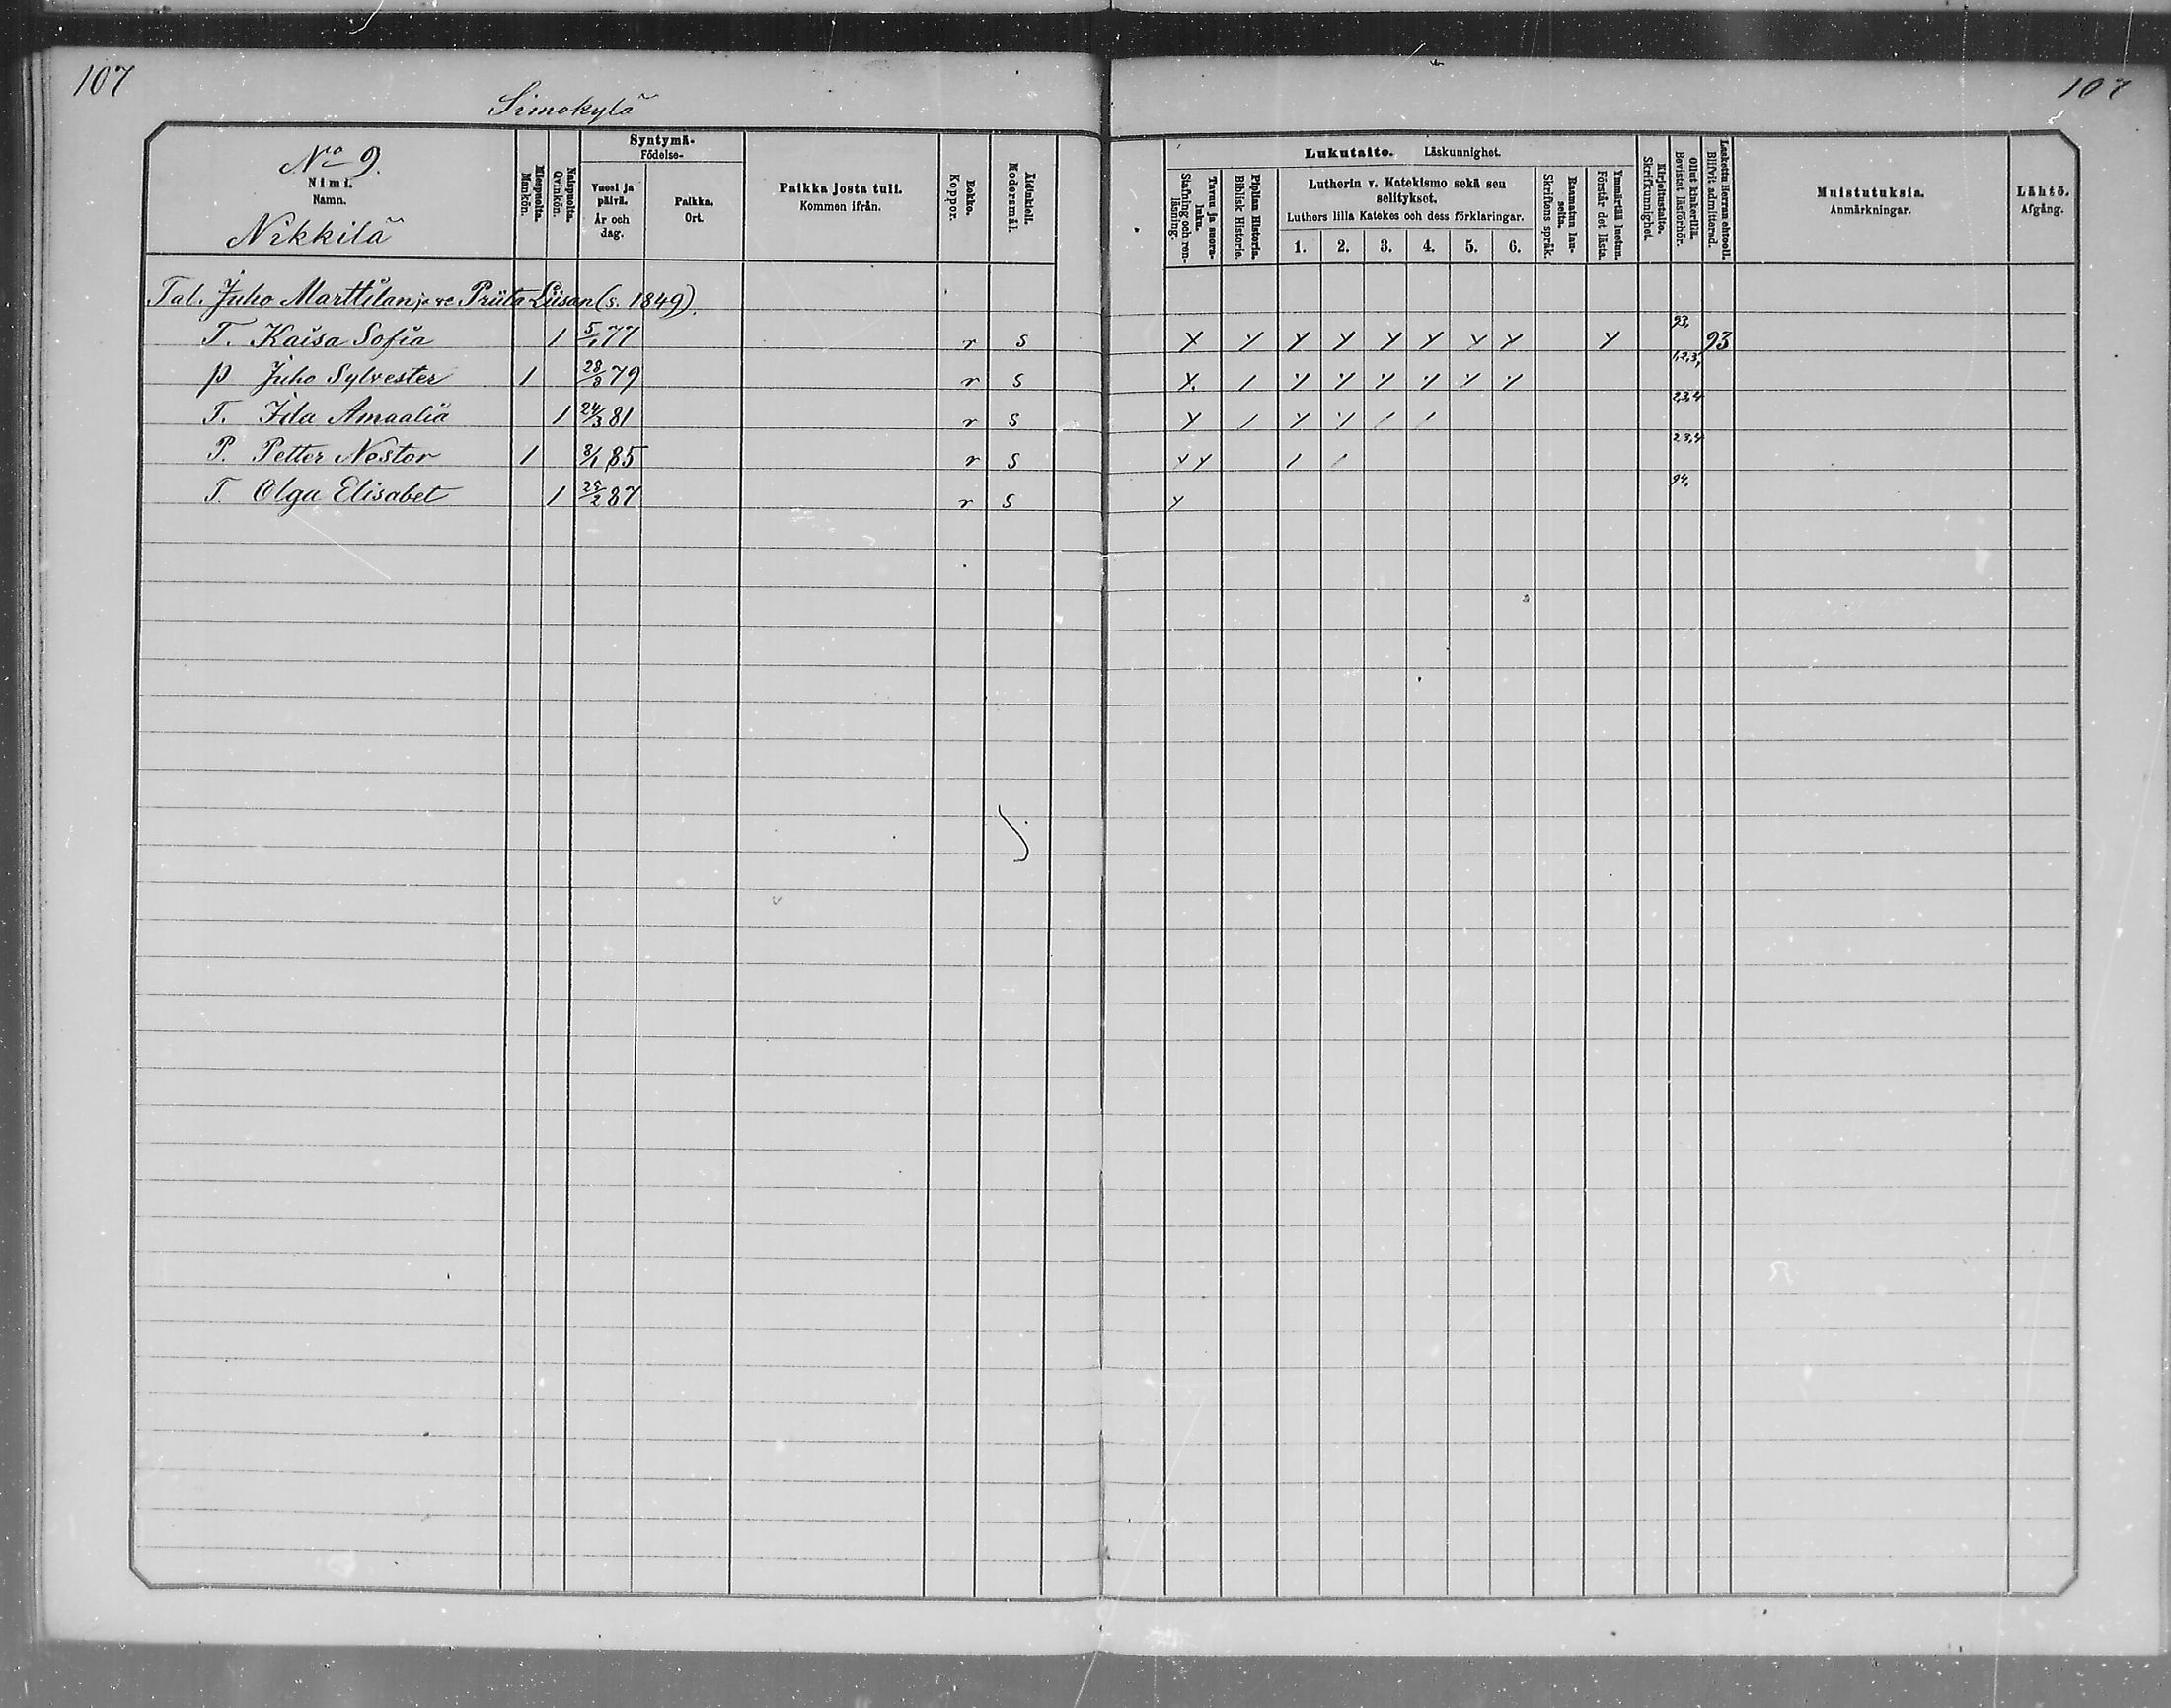 107
107
Simokylä
No 9.
Nimi.
Namn.
Nikkilä
Miespuolia.
Mankön.
Naispuolia.
Qvinkön.
Syntymä-
Födelse-
Vuosi ja päivä.
År och dag.
Paikka.
Ort.
Paikka josta tuli.
Kommen ifrån.
Rokko.
Koppor.
Äidinkieli.
Modersmål.
Lukutaito. Läskunnighet.
Tavuu ja suoraluku.
Stafning och renläsning.
Piplian Historia.
Biblisk Historie.
Lutherin v. Katekismo sekä sen selitykset.
Luthers lilla Katekes och dess förklaringar.
1. 2. 3. 4. 5. 6.
Raamatun lauseita.
Skriftens språk.
Ymmärtää luetun.
Förstår det lästa.
Kirjoitustaito.
Skrifkunnighet.
Ollut kinkerillä.
Bevistat läsförhör.
Laskettu Herran ehtooll.
Blifvit admitterad.
Muistutuksia.
Anmärkningar.
Lähtö.
Afgång.
Tal. Juho Marttilan ja ve Priita Liisan (s. 1849).
T. Kaisa Sofia 1 5/1 77 r s Y Y Y Y Y Y Y Y Y 93, 93
p Juho Sylvester 1 28/8 79 r s Y. / Y Y Y Y Y Y 1,2,3,
T. Ida Amaalia 1 24/3 81 r s Y / Y Y / / 2,3,4
P. Petter Nestor 1 3/1 85 r s Y Y / / 2 3,4
T. Olga Elisabet 1 25/2 87 r s Y 94.